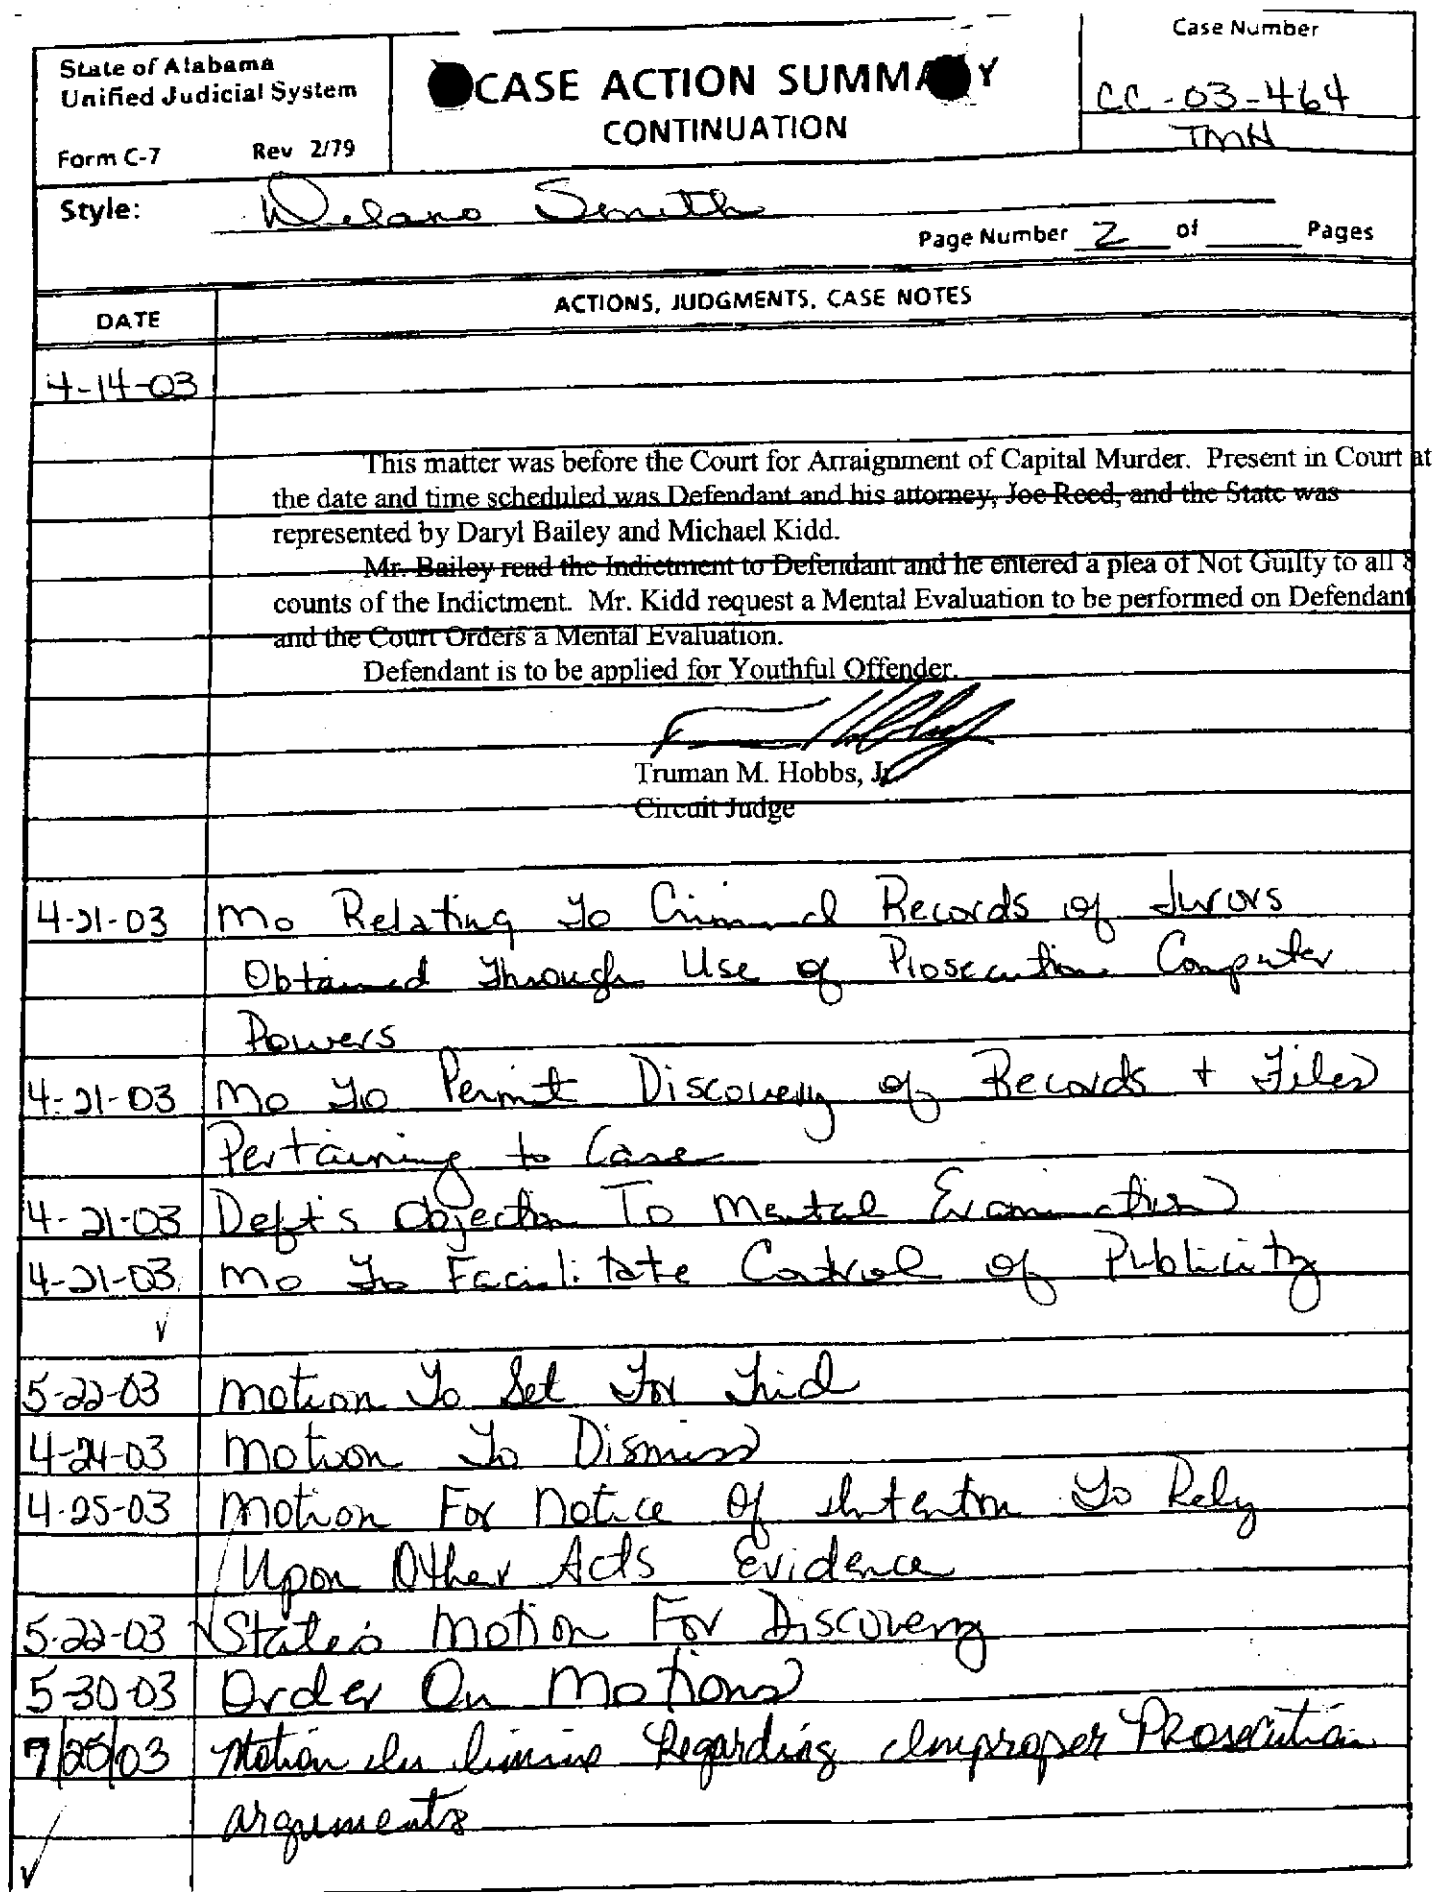 Case Number
State of Alabama
Unified Judicial System
CASE ACTION SUMMARY
CONTINUATION
CC-03-464
TMH
Form C-7 Rev 2/79
Style: Delano Smith
Page Number 2 of Pages
DATE ACTIONS, JUDGMENTS, CASE NOTES
4-14-03
This matter was before the Court for Arraignment of Capital Murder. Present in Court at
the date and time scheduled was Defendant and his attorney, Joe Reed, and the State was
represented by Daryl Bailey and Michael Kidd.
Mr. Bailey read the Indictment to Defendant and he entered a plea of Not Guilty to all 8
counts of the Indictment. Mr. Kidd request a Mental Evaluation to be performed on Defendant
and the Court Orders a Mental Evaluation.
Defendant is to be applied for Youthful Offender.
Truman M. Hobbs, Jr
Circuit Judge
4-21-03 Mo Relating To Criminal Records of Jurors
Obtained Through Use of Prosecution Computer
Powers
4-21-03 Mo To Permit Discovery of Records + Files
Pertaining to Case
4-21-03 Deft's Objection To Mental Examination
4-21-03 Mo To Facilitate Control of Publicity
5-22-03 Motion To Set For Trial
4-24-03 Motion To Dismiss
4-25-03 Motion For Notice Of Intention To Rely
Upon Other Acts Evidence
5-22-03 State's Motion For Discovery
5-30-03 Order On Motions
7/25/03 Motion In limine Regarding Improper Prosecution
arguments